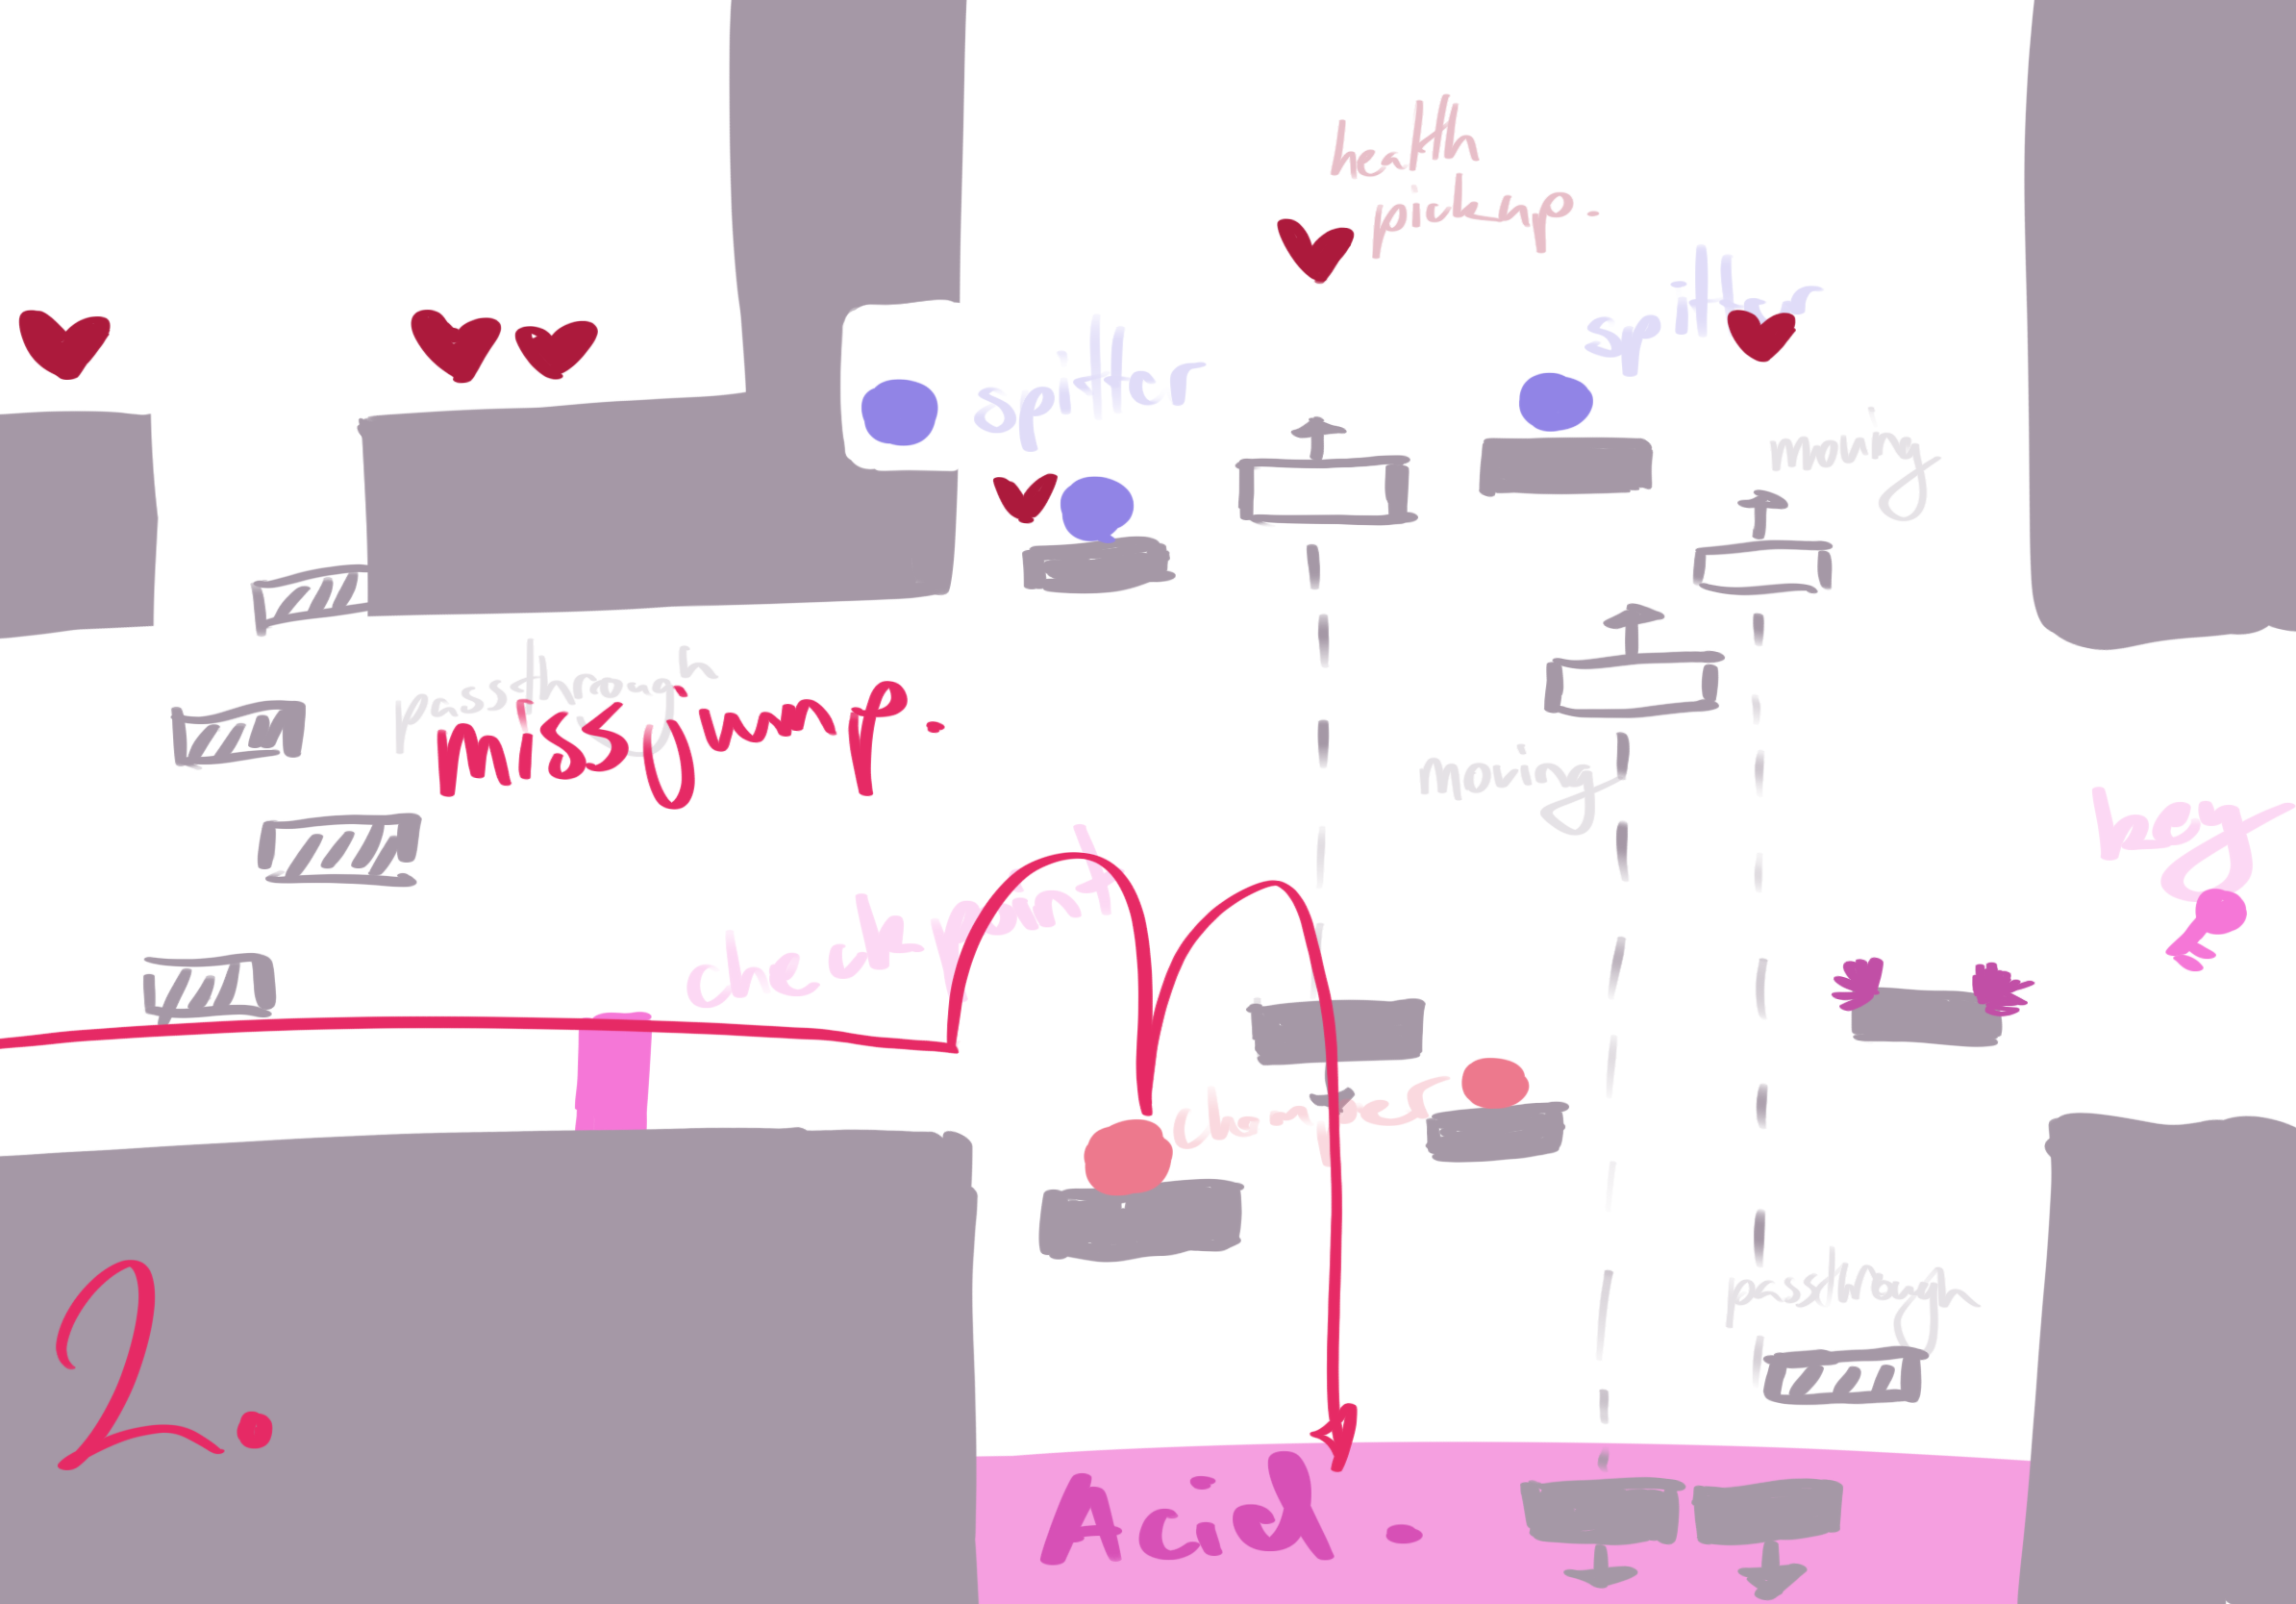 health
pickup.
spitter
spitter
moving
passthrough
miss jump.
moving
key
checkpoint
chomper
passthrough
2.
Acid.